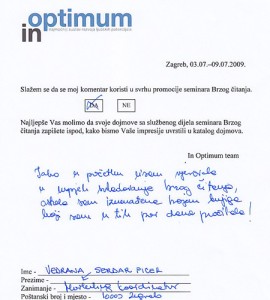 in optimum
Zagreb, 03.07.–09.07.2009.
Slažem se da se moj komentar koristi u svrhu promocije seminara Brzog čitanja.
DA NE
Najljepše Vas molimo da svoje dojmove sa službenog dijela seminara Brzog
čitanja zapišete ispod, kako bismo Vaše impresije uvrstili u katalog dojmova.
In Optimum team
Iako u početku nisam vjerovala
u uspjeh svladavanja brzog čitanja,
ostala sam iznenađena brojem knjiga
koj sam u tih par dana pročitala!
Ime – VEDRANA SERDAR PICEK
Prezime –
Zanimanje – MARKETING KOORDINATOR
Poštanski broj i mjesto – 10000 Zagreb